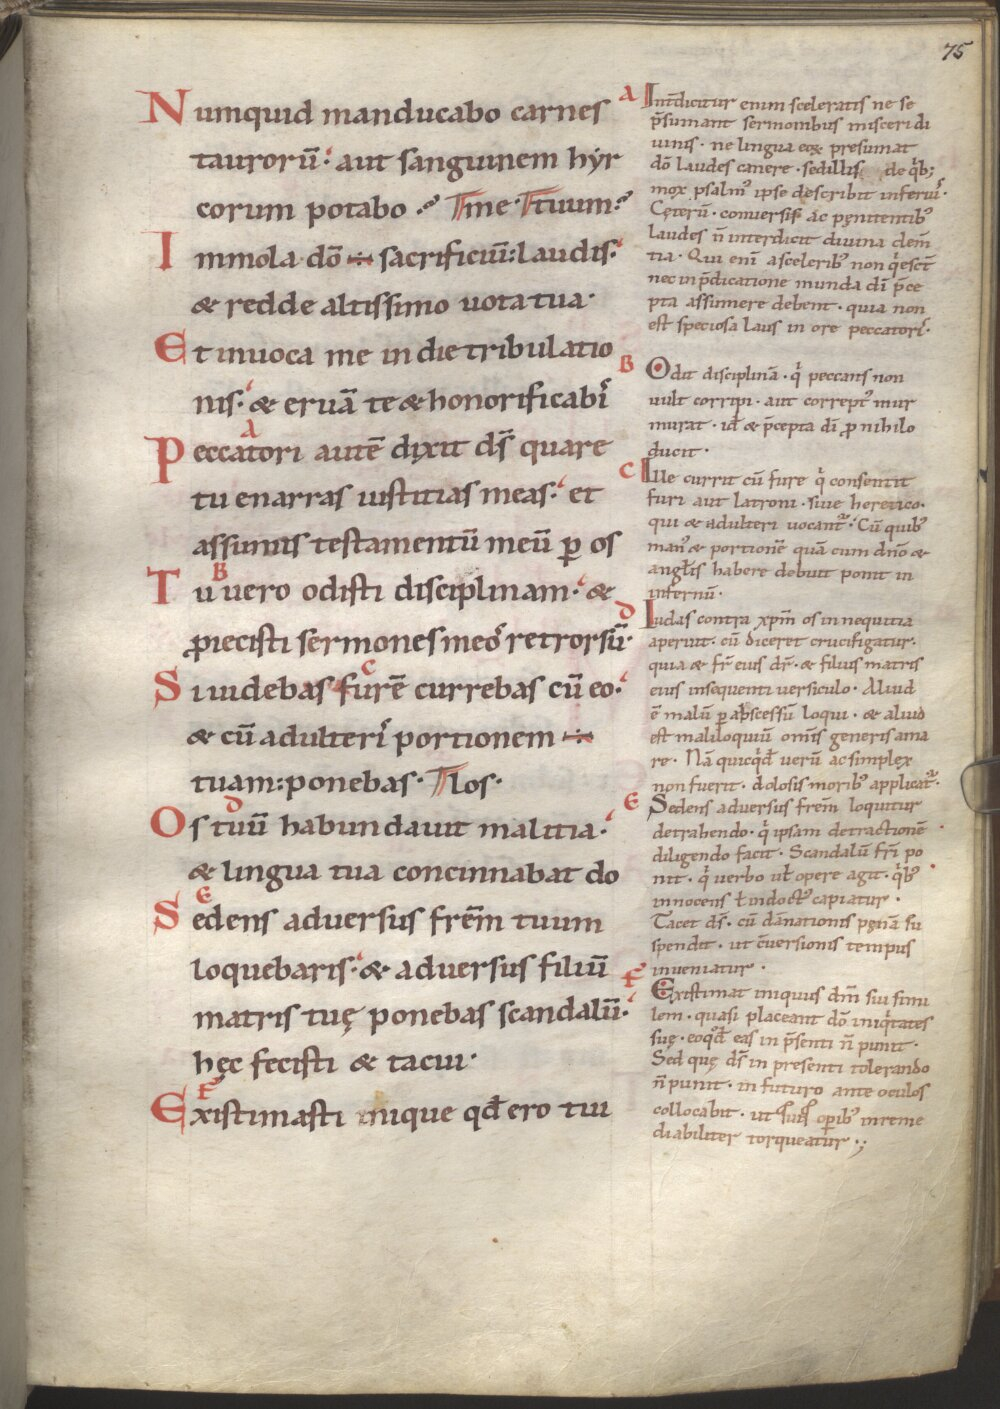 75
Numquid manducabo carnes
taurorū. aut sanguinem hyr
corum potabo.
Immola dō ÷ sacrificiū: laudis.
& redde altissimo uota tua.
Et inuoca me in die tribulatio
nis. & eruā te & honorificabi᷒
A
Peccatori autē dixit ds̄ quare
tu enarras iustitias meas. et
assumis testamentū meū ꝑ os
B
Tu uero odisti disciplinam. &
ꝓiecisti sermones meo᷒ retrorsū.
C
Si uidebas furē currebas cū eo.
& cū adulteri᷒ portionem ÷
tuam: ponebas.
D
Os tuū habundauit malitia.
& lingua tua concinnabat do
E
Sedens aduersus frēm tuum
loquebaris. & aduersus filiū
matris tuę ponebas scandalū.
hęc fecisti & tacui.
F
Existimasti inique qđ ero tui
A Int̄dicitur enim sceleratis ne se
p̄sumant sermonibus misceri di
uinis. ne lingua eoꝝ presumat
dō laudes canere. sed illis de qͥb;
mox psalm᷒ ipse describit inferiu᷒.
Cęterū. conuersis ac pęnitentib᷒
laudes n̄ interdicit diuina clem̄
tia. Qui eni᷒ a scelerib᷒ non qͥesc̄t
nec in p̄dicatione munda dī p̄ce
pta assumere debent. quia non
est speciosa laus in ore peccatori᷒.
B Odit disciplinā. qͥ peccans non
uult corripi. aut corrept᷒ mur
murat. id̄ & p̄cepta dī ꝓ nihilo
ducit.
C Ille currit cū fure qͥ consentit
furi aut latroni. siue heretico.
qui & adulteri uocant᷒. Cū quib᷒
man᷒ & portionē quā cum dn̄o &
angl̄is habere debuit ponit in
infernū.
D Iudas contra xpm̄ os in nequitia
aperuit. cū diceret crucifigatur.
quia & fr̄ eius dr̄. & filius matris
eius insequenti uersiculo. Aliud
ē malū ꝑ abscessū loqui. & aliud
est maliloquiū om̄is generis ama
re. Nā quicqͥd uerū ac simplex
non fuerit. dolosis morib᷒ applicat᷒.
E Sedens aduersus frēm loquitur
detrahendo. qͥ ipsam detractionē
diligendo facit. Scandalū fr̄i po
nit. qͥ uerbo ul̄ opere agit. qͥb᷒
innocens ł indoct᷒ capiatur.
Tacet ds̄. cū dānationis pęnā su
spendit. ut c̄uersionis tempus
inueniatur.
F Existimat iniquus dm̄ sui simi
lem. quasi placeant dō iniqͥtates
suę. eoqͦđ eas in p̄senti n̄ punit.
Sed quę ds̄ in presenti tolerando
n̄ punit. in futuro ante oculos
collocabit. ut suis oꝑib᷒ inreme
diabiliter torqueatur.;